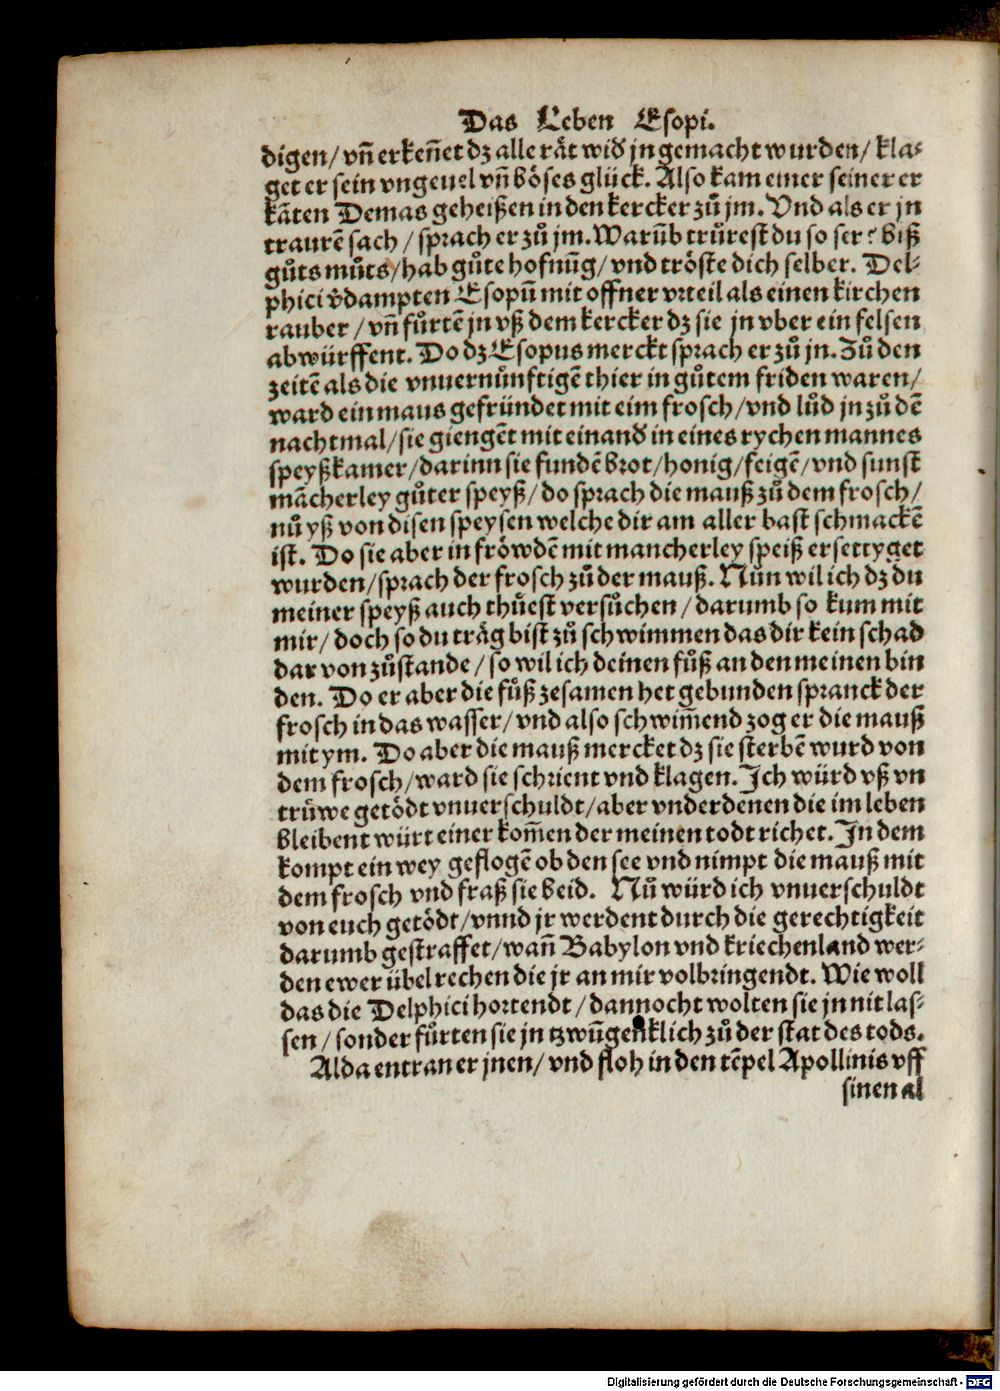 Das Leben Esopi.
digen / vñ erkeñet dz alle rät wid͛ jn gemacht wurden / kla⸗
get er sein vngeuel vñ böses glück. Also kam einer seiner er
kãten Demas geheißen in den kercker zů jm. Vnd als er jn
traurẽ sach / sprach er zů jm. Warũb trůrest du so ser? biß
gůts můts / hab gůte hofnũg / vnd tröste dich selber. Del⸗
phici v̂dampten Esopũ mit offner vrteil als einen kirchen
rauber / vñ fůrtẽ jn vß dem kercker dz sie jn vber ein felsen
abwürffent. Do dz Esopus merckt sprach er zů jn. Zů den
zeitẽ als die vnuernůnftigẽ thier in gůtem friden waren /
ward ein maus gefründet mit eim frosch / vnd lůd jn zů dẽ
nachtmal / sie giengẽt mit einand͛ in eines rychen mannes
speyßkamer / darinn sie fundẽ brot / honig / feigẽ / vnd sunst
mãcherley gůter speyß / do sprach die mauß zů dem frosch /
nů yß von disen speysen welche dir am aller bast schmackẽ
ist. Do sie aber in fröwdẽ mit mancherley speiß ersettyget
wurden / sprach der frosch zů der mauß. Nůn wil ich dz du
meiner speyß auch thůest versůchen / darumb so kum mit
mir / doch so du träg bist zů schwimmen das dir kein schad
dar von zůstande / so wil ich deinen fůß an den meinen bin
den. Do er aber die fůß zesamen het gebunden spranck der
frosch in das wasser / vnd also schwim̃end zog er die mauß
mit ym. Do aber die mauß mercket dz sie sterbẽ wurd von
dem frosch / ward sie schrient vnd klagen. Ich würd vß vn
trüwe getödt vnuerschuldt / aber vnder denen die im leben
bleibent würt einer kom̃en der meinen todt richet. In dem
kompt ein wey geflogẽ ob den see vnd nimpt die mauß mit
dem frosch vnd fraß sie beid. Nů würd ich vnuerschuldt
von euch getödt / vnnd jr werdent durch die gerechtigkeit
darumb gestraffet / wañ Babylon vnd kriechenland wer⸗
den ewer übel rechen die jr an mir volbringendt. Wie woll
das die Delphici hortendt / dannocht wolten sie jn nit las⸗
sen / sonder fůrten sie jn tzwũgenklich zů der stat des tods.
Alda entran er jnen / vnd floh in den tẽpel Apollinis vff
sinen al
Digitalisierung gefördert durch die Deutsche Forschungsgemeinschaft - DFG